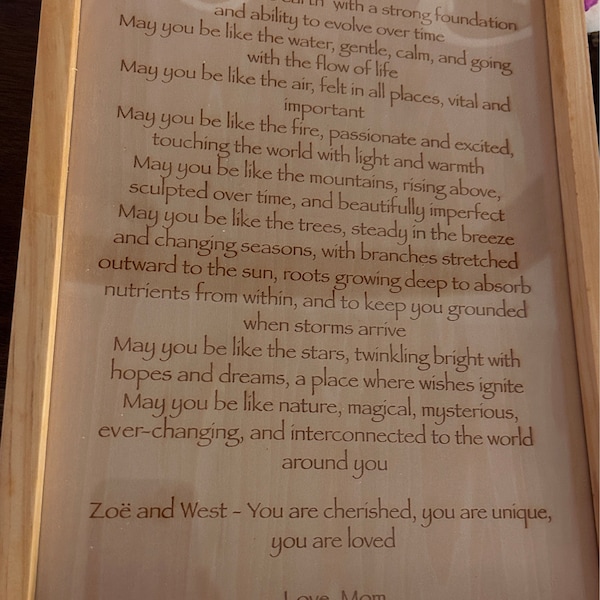 earth with a strong foundation
and ability to evolve over time
May you be like the water, gentle, calm, and going
with the flow of life
May you be like the air, felt in all places, vital and
important
May you be like the fire, passionate and excited,
touching the world with light and warmth
May you be like the mountains, rising above,
sculpted over time, and beautifully imperfect
May you be like the trees, steady in the breeze
and changing seasons, with branches stretched
outward to the sun, roots growing deep to absorb
nutrients from within, and to keep you grounded
when storms arrive
May you be like the stars, twinkling bright with
hopes and dreams, a place where wishes ignite
May you be like nature, magical, mysterious,
ever-changing, and interconnected to the world
around you
Zoë and West - You are cherished, you are unique,
you are loved
Love, Mom